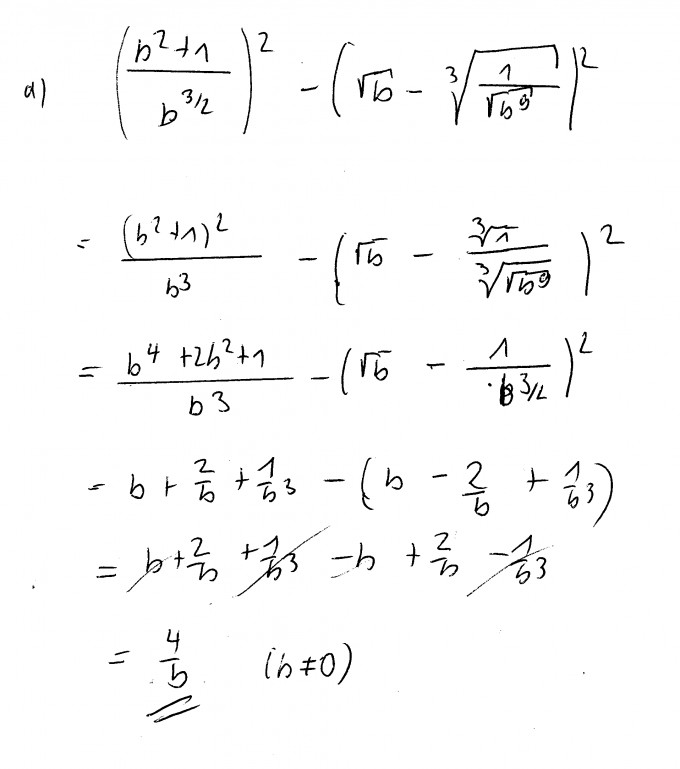 a) ((b²+1)/b^(3/2))² - (√b - ∛(1/√b⁹))²
= (b²+1)²/b³ - (√b - ∛1/∛√b⁹)²
= (b⁴+2b²+1)/b³ - (√b - 1/b^(3/2))²
= b + 2/b + 1/b³ - (b - 2/b + 1/b³)
= b + 2/b + 1/b³ - b + 2/b - 1/b³
= 4/b (b≠0)